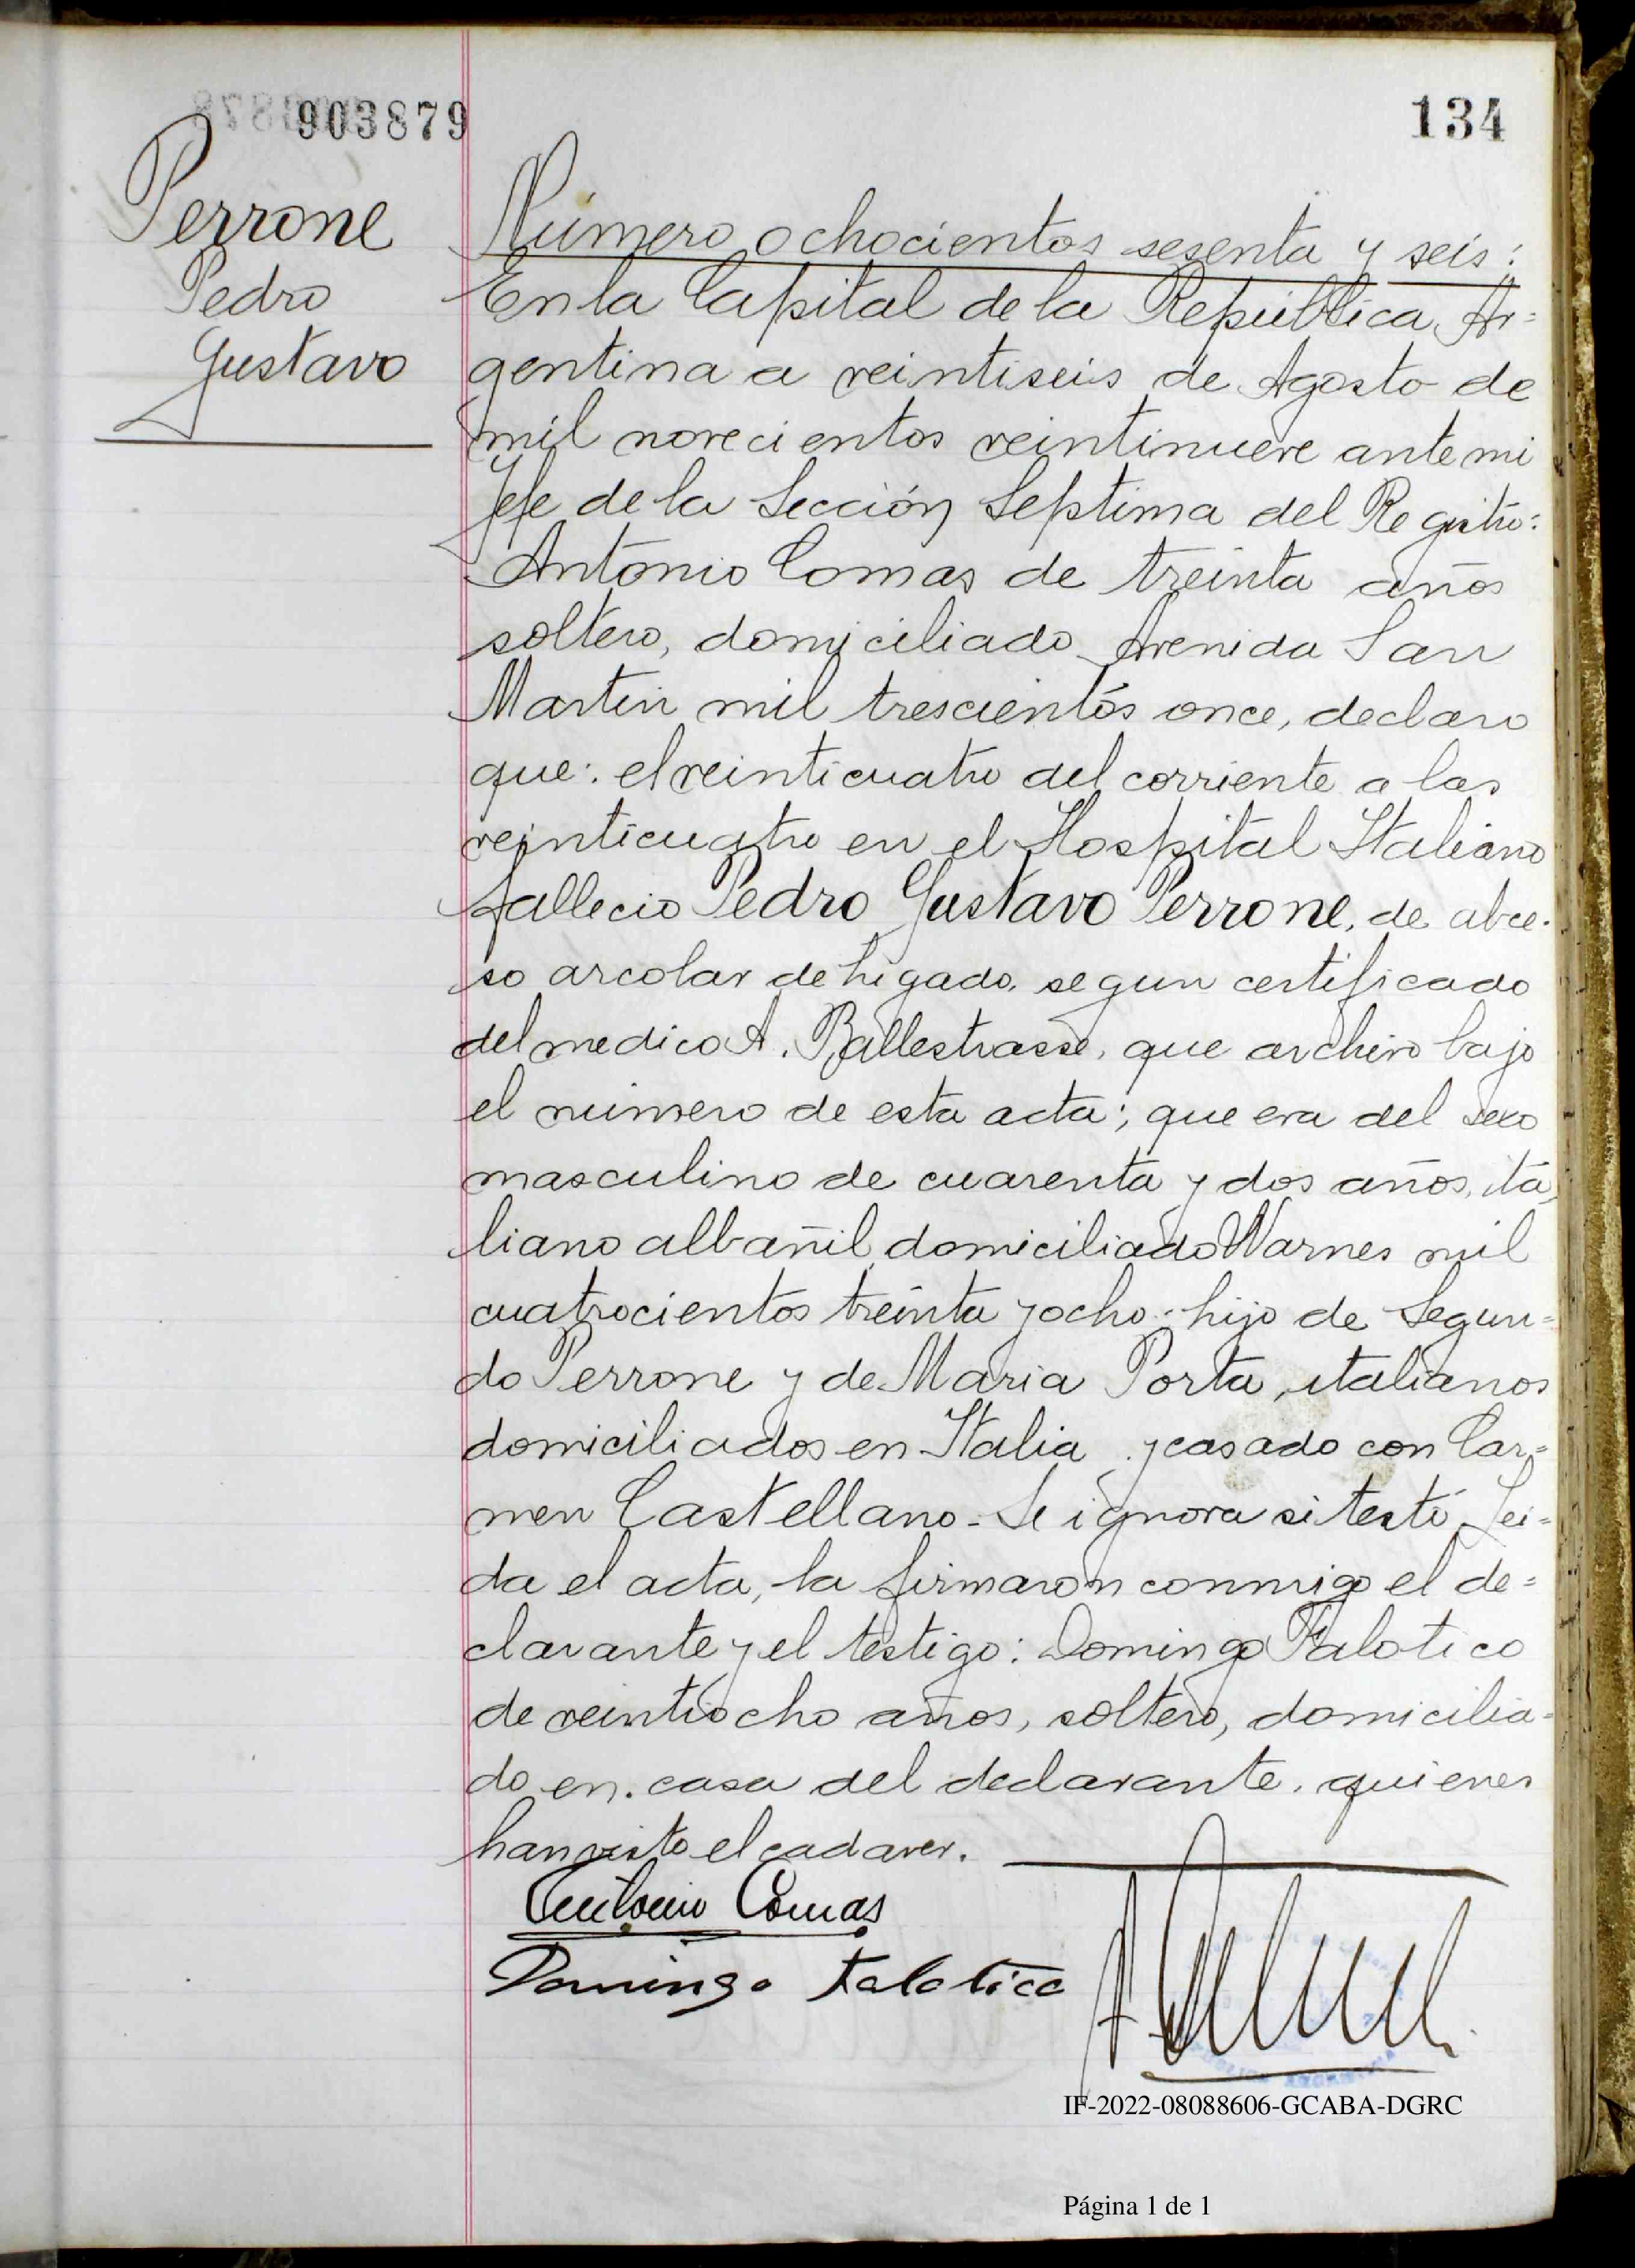 903879
134
Perrone
Pedro
Gustavo
Número ochocientos sesenta y seis:
En la Capital de la República Ar=
gentina a veintiseis de Agosto de
mil novecientos veintinueve ante mi
Jefe de la Sección Septima del Registro:
Antonio Comas de treinta años
soltero, domiciliado Avenida San
Martin mil trescientos once, declaro
que: el veinticuatro del corriente a las
veinticuatro en el Hospital Italiano
fallecio Pedro Gustavo Perrone, de abce-
so arcolar de higado, segun certificado
del medico A. Ballestrasse, que archivo bajo
el número de esta acta; que era del sexo
masculino de cuarenta y dos años, ita
liano albañil domiciliado Warnes mil
cuatrocientos treinta y ocho: hijo de Segun=
do Perrone y de Maria Porta, italianos
domiciliados en Italia y casado con Car=
men Castellano. Se ignora si testó Lei=
da el acta, la firmaron conmigo el de=
clarante y el testigo: Domingo Falotico
de veintiocho años, soltero, domicilia=
do en casa del declarante, quienes
han visto el cadaver.
Antonio Comas
Domingo Falotico
IF-2022-08088606-GCABA-DGRC
Página 1 de 1